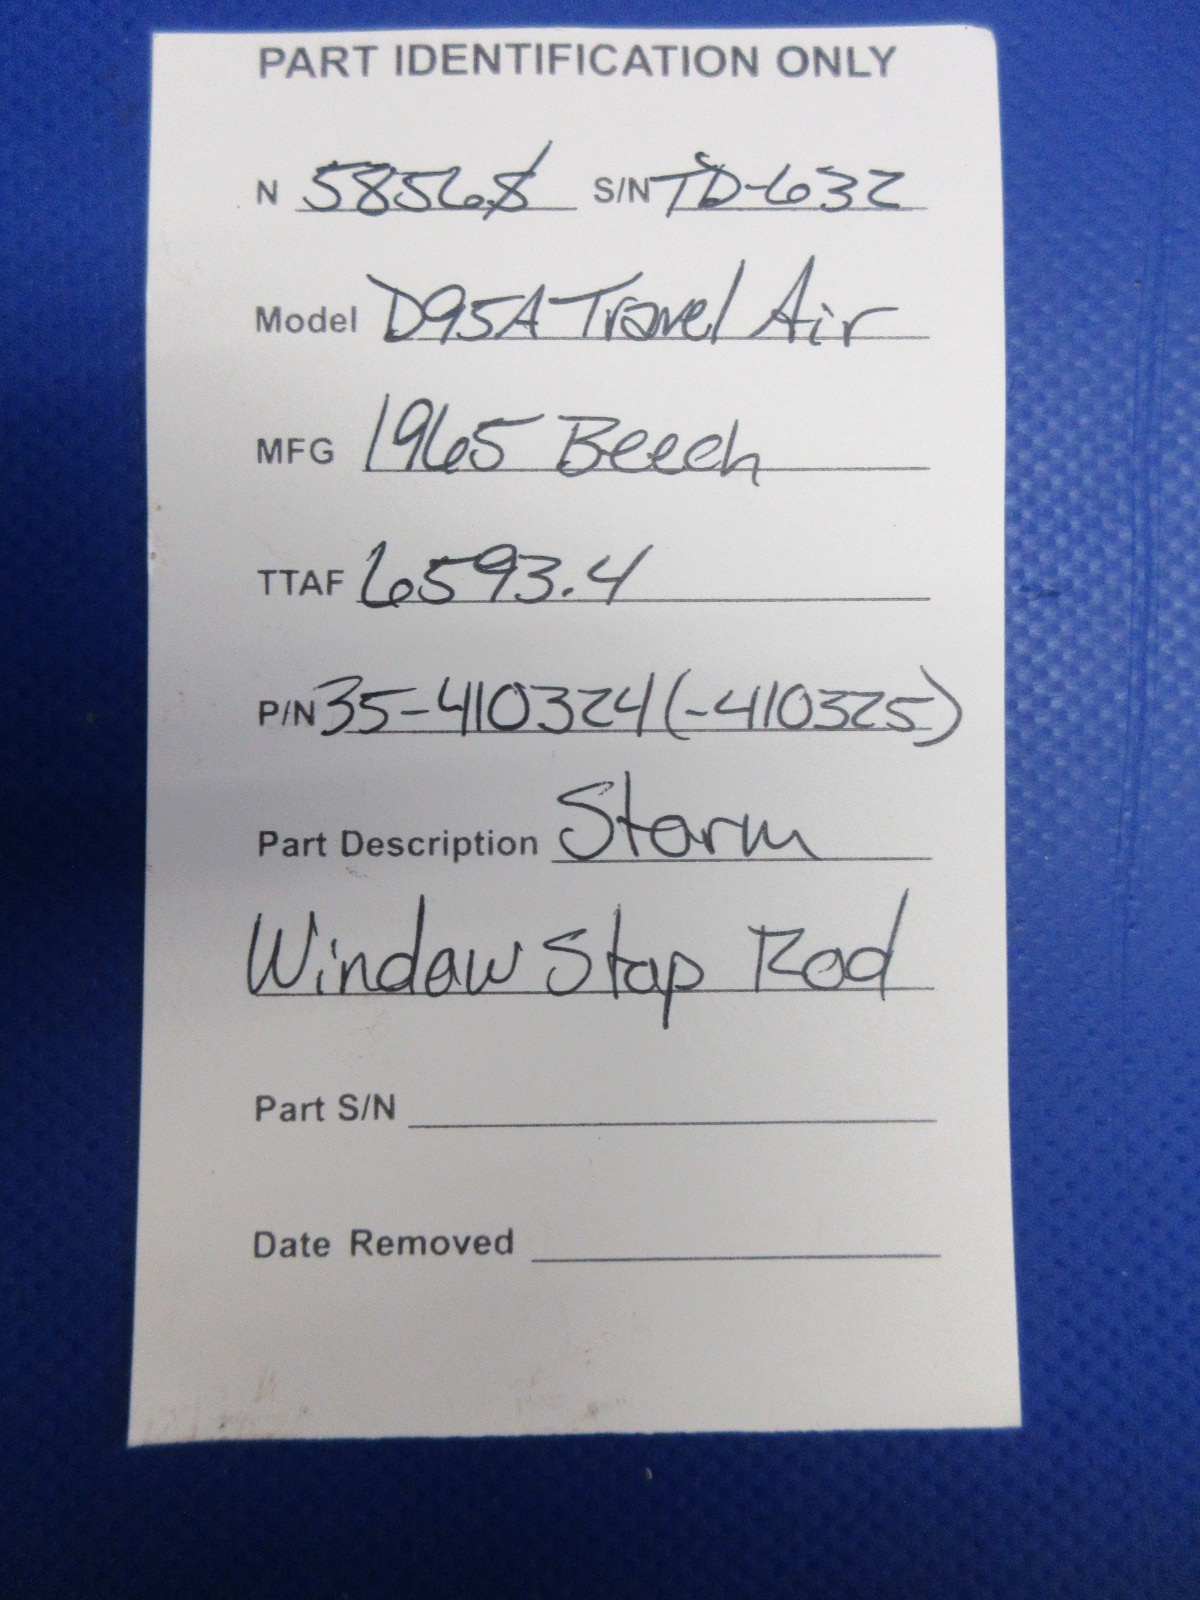 PART IDENTIFICATION ONLY
N 5856S S/N TD-632
Model D95A Travel Air
MFG 1965 Beech
TTAF 6593.4
P/N 35-410324(-410325)
Part Description Storm
Window Stop Rod
Part S/N
Date Removed